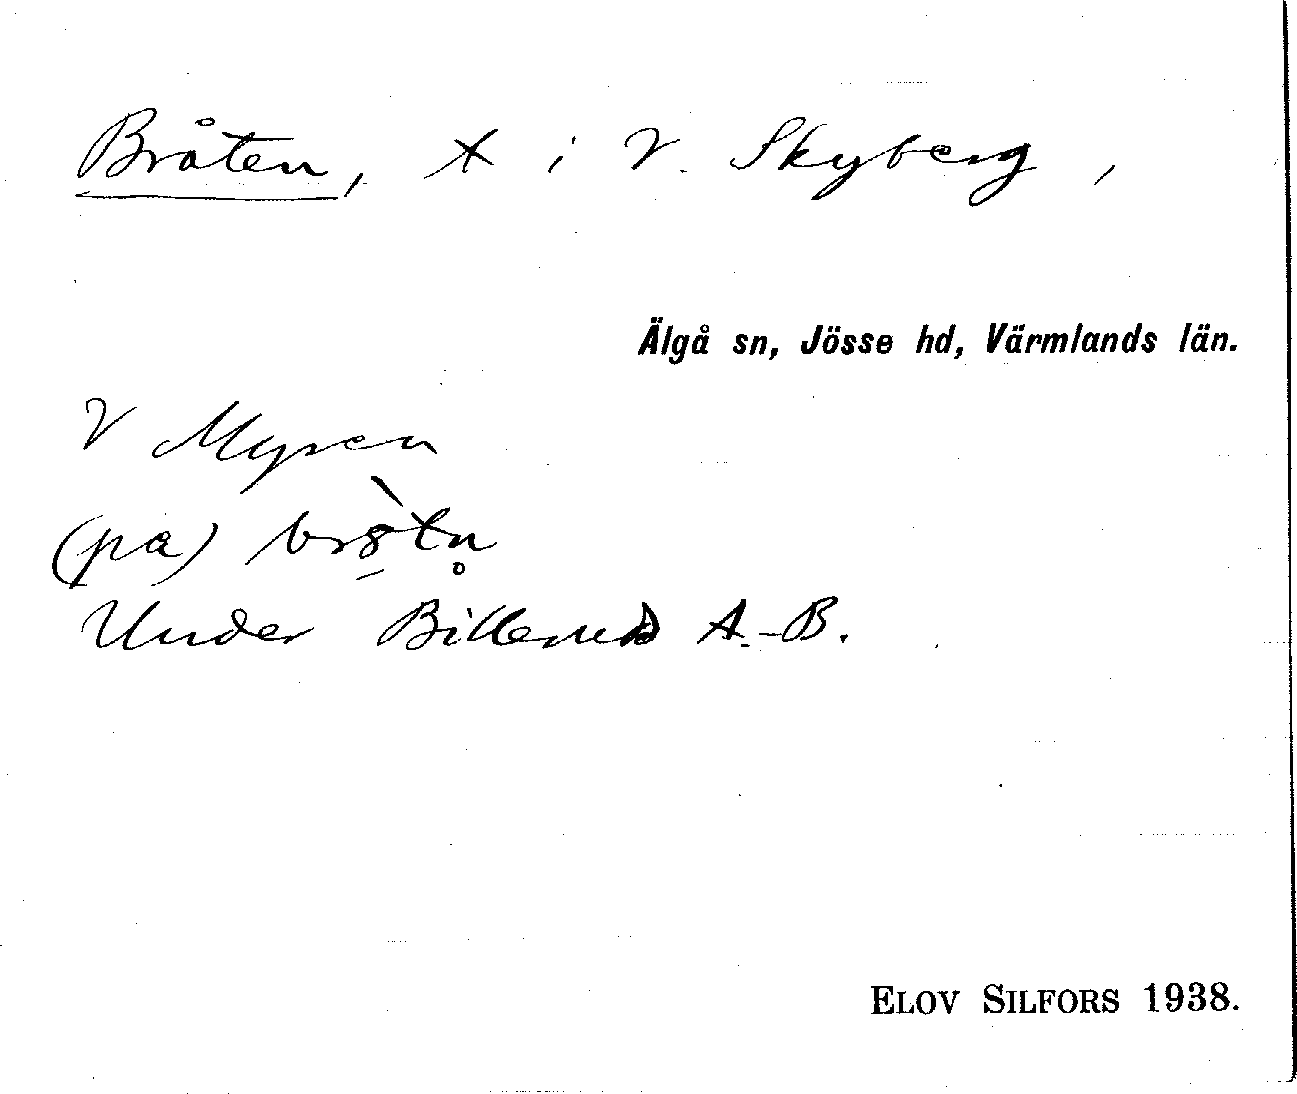 Bråten, t i V. Skyberg,
Älgå sn, Jösse hd, Värmlands län.
V Myren
(på) br8̱̀tn̥
Under Billeruds A.-B.
ELOV SILFORS 1938.